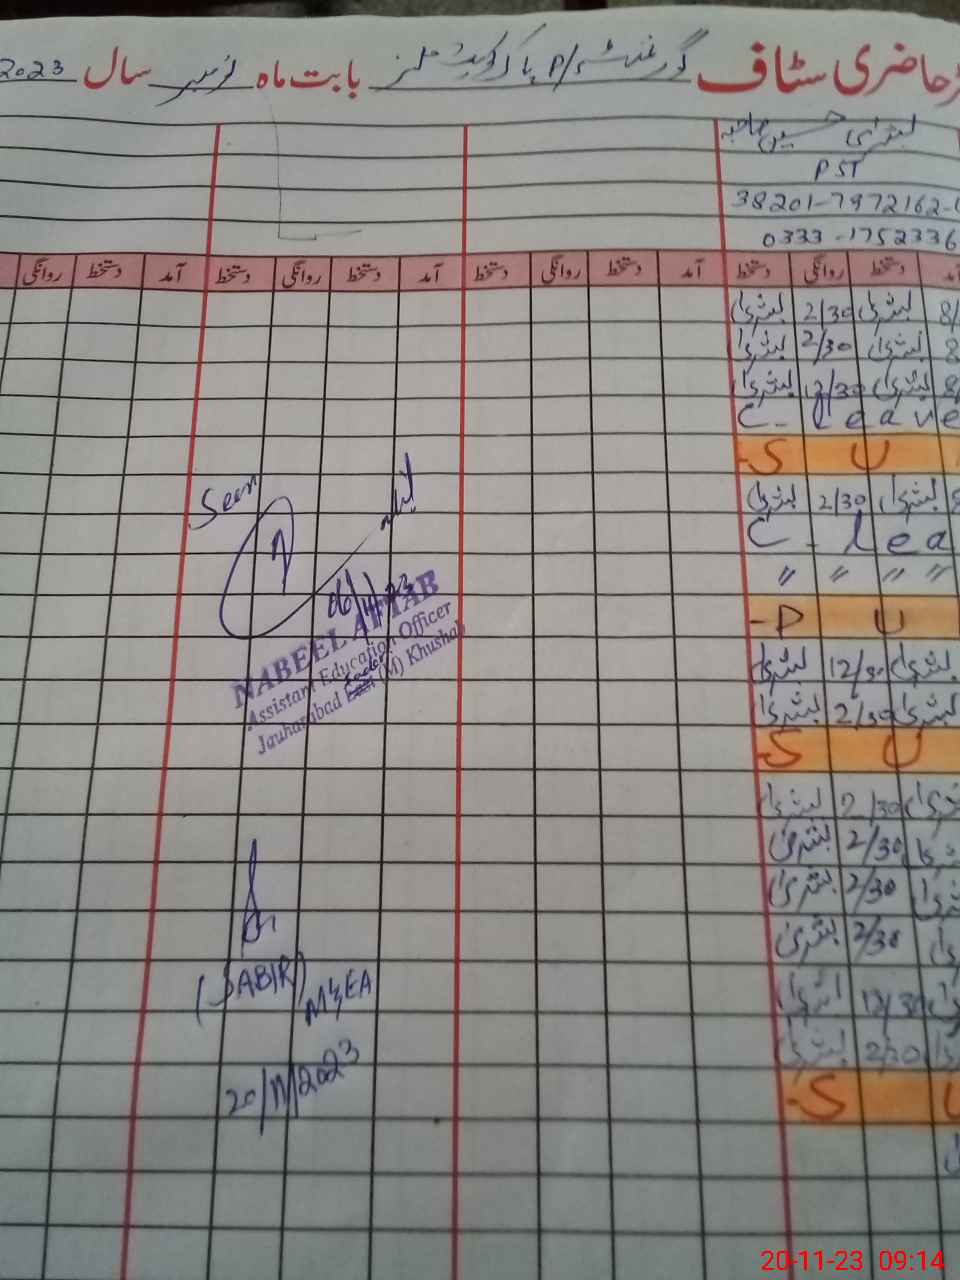 حاضری سٹاف گورنمنٹ P/S بابت ماہ نومبر سال 2023
بشریٰ حسین صاحبہ
PST
38201-7972162-
0333-1752336
دستخط روانگی دستخط آمد دستخط روانگی دستخط آمد دستخط روانگی دستخط آمد دستخط روانگی
بشریٰ 2/30 بشریٰ 8/
بشریٰ 2/30 بشریٰ 8
بشریٰ 12/30 بشریٰ 8/
C- leave
S U
بشریٰ 2/30 بشریٰ 8
C - lea
" " " "
P U
بشریٰ 12/30 بشریٰ
بشریٰ 2/30 بشریٰ
S U
بشریٰ 2/30
بشریٰ 2/30
بشریٰ 2/30
بشریٰ 2/30
بشریٰ 12/30
بشریٰ 2/30
S U
Seen
06/11/23
NABEEL AFTAB
Assistant Education Officer
Jauharabad (M) Khushab
(SABIR)
MEA
20/11/2023
20-11-23 09:14